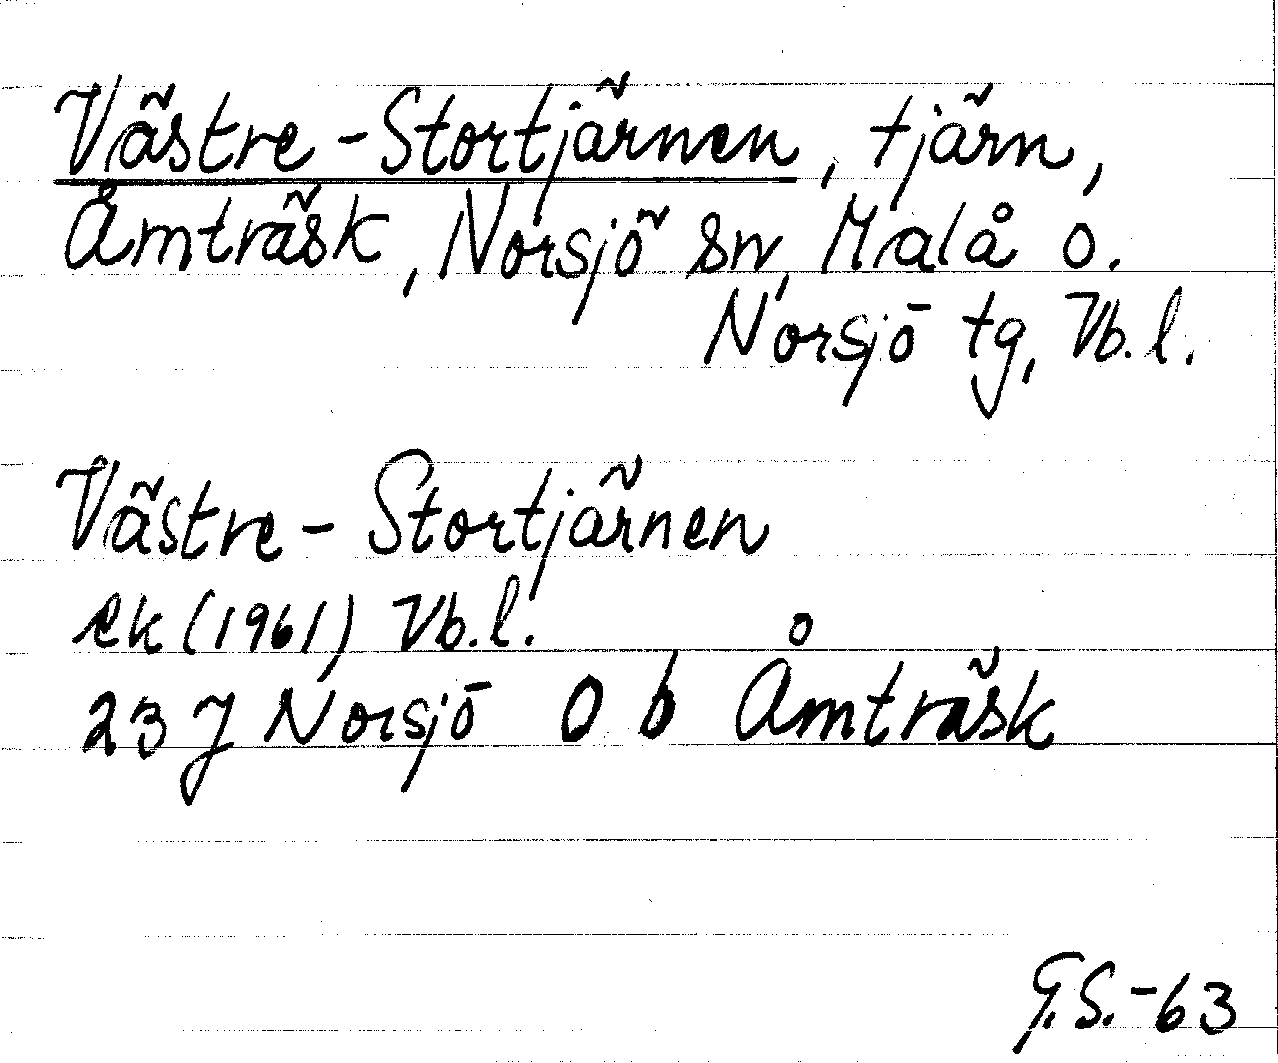 Västre-Stortjärnen, tjärn,
Åmträsk, Norsjö sn, Malå o.
Norsjö tg, Vb. l.
Västre-Stortjärnen
ek (1961) Vb. l.
23 J Norsjö 0 b Åmträsk
G.S.-63